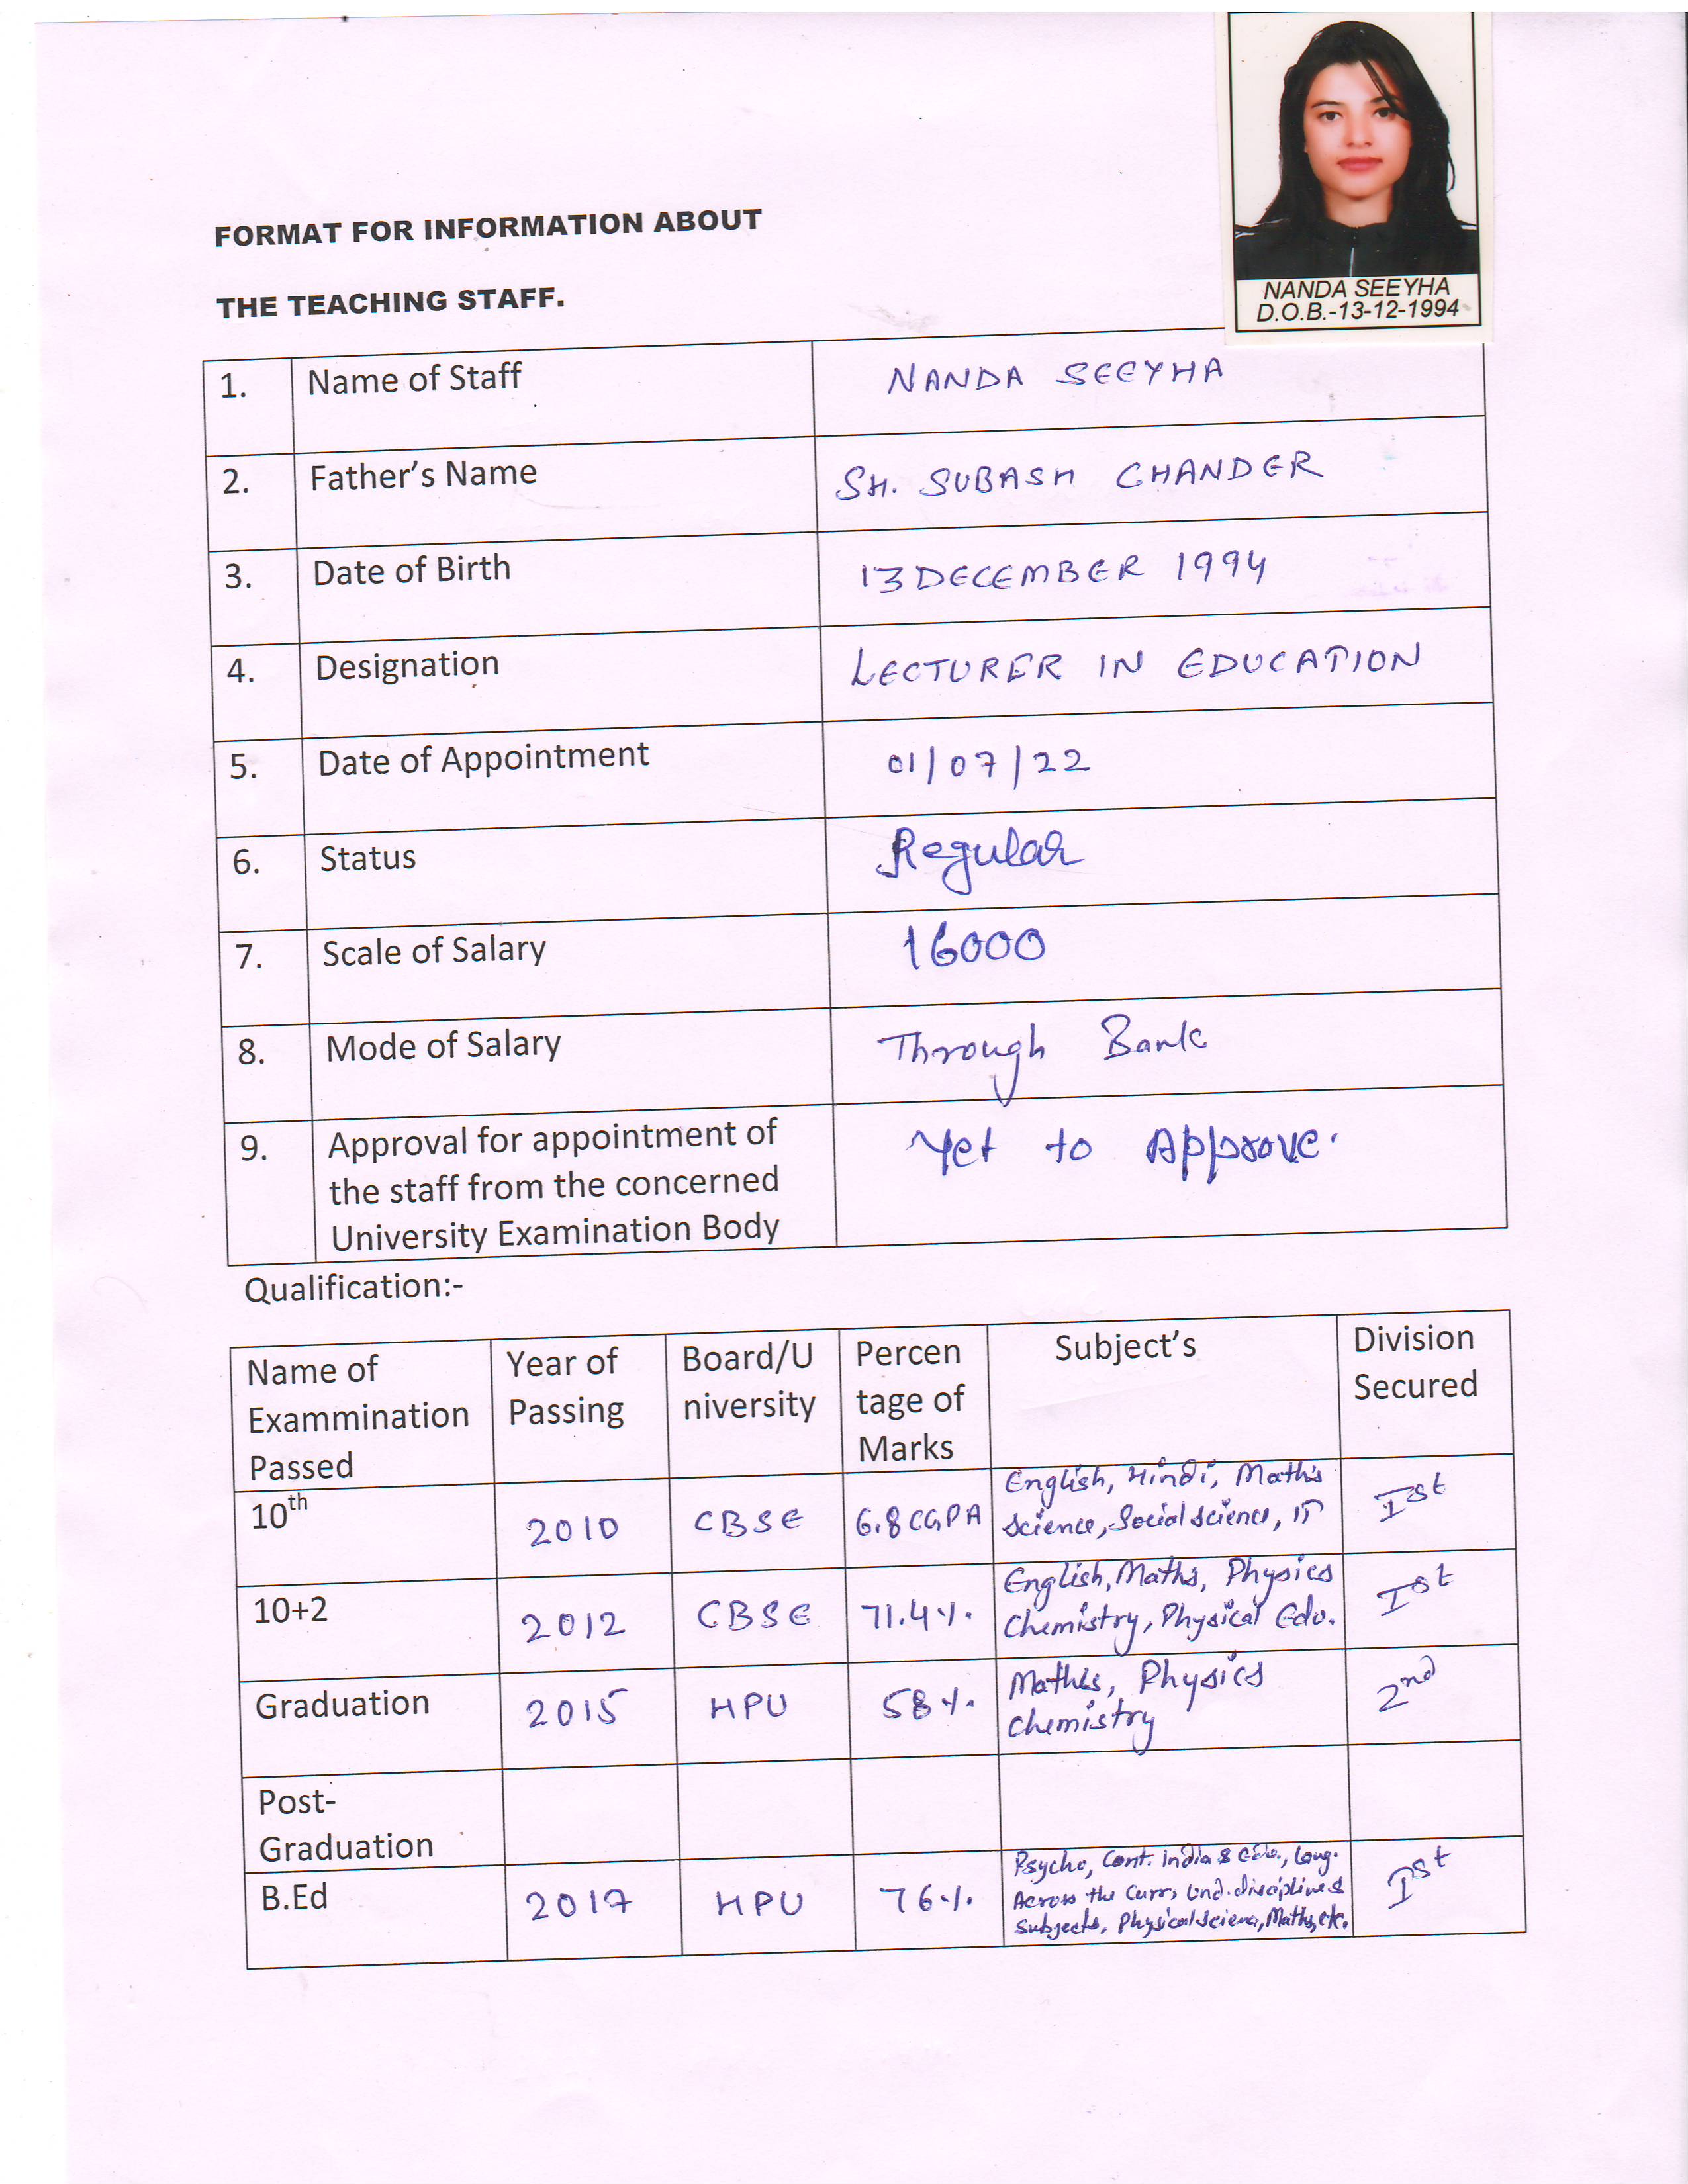 NANDA SEEYHA
D.O.B.-13-12-1994
FORMAT FOR INFORMATION ABOUT
THE TEACHING STAFF.
1. Name of Staff NANDA SEEYHA
2. Father's Name SH. SUBASH CHANDER
3. Date of Birth 13 DECEMBER 1994
4. Designation LECTURER IN EDUCATION
5. Date of Appointment 01/07/22
6. Status Regular
7. Scale of Salary 16000
8. Mode of Salary Through Bank
9. Approval for appointment of
the staff from the concerned
University Examination Body
Yet to Approve.
Qualification:-
Name of
Exammination
Passed
Year of
Passing
Board/U
niversity
Percen
tage of
Marks
Subject's
Division
Secured
10th 2010 CBSE 6.8 CGPA
English, Hindi, Maths
Science, Social Science, IT
Ist
10+2 2012 CBSE 71.4%.
English, Maths, Physics
Chemistry, Physical Edu.
Ist
Graduation 2015 HPU 58%.
Maths, Physics
Chemistry
2nd
Post-
Graduation
B.Ed 2017 HPU 76%.
Psycho, Cont. India & Edu., Lang.
Across the Curr, Und. disciplines
Subjects, Physical Science, Maths, etc.
Ist